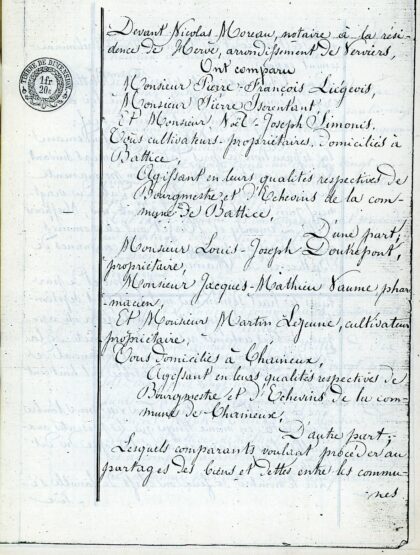 TIMBRE DE DIMENSION
1 fr
20c
Devant Nicolas Moreau, notaire à la rési-
dence de Herve, arrondissement de Verviers,
Ont comparu
Monsieur Pierre-François Liégeois,
Monsieur Pierre
Et Monsieur Noël-Joseph Simonis.
Tous cultivateurs-propriétaires, domiciliés à
Battice,
Agissant en leurs qualités respectives de
Bourgmestre et d'Echevins de la com-
mune de Battice,
D'une part,
Monsieur Louis-Joseph Doutrepont,
propriétaire,
Monsieur Jacques-Mathieu Vaume phar-
macien,
Et Monsieur Martin Lejeune, cultivateur
propriétaire,
Tous domiciliés à Chaineux,
Agissant en leurs qualités respectives de
Bourgmestre et d'Echevins de la com-
mune de Chaineux,
D'autre part,
Lesquels comparants voulant procéder au
partages des biens et dettes entre les commu-
nes